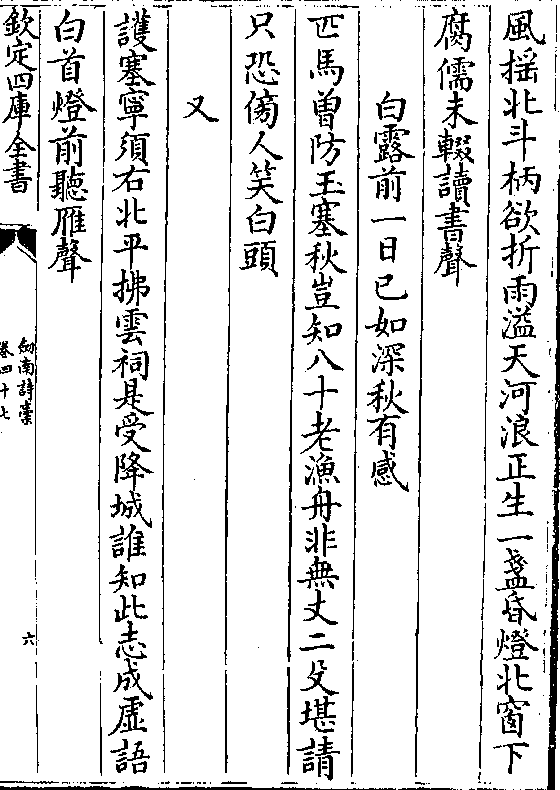 風揺北斗柄欲折雨溢天河浪正生一盞昏燈北窗下
腐儒未輟讀書聲
白露前一日已如深秋有感
匹馬曽防玉塞秋豈知八十老漁舟非無丈二殳堪請
只恐傍人笑白頭
又
護塞寧須右北平拂雲祠是受降城誰知此志成虛語
白首燈前聽雁聲
欽定四庫全書
劒南詩槀
卷四十七
六